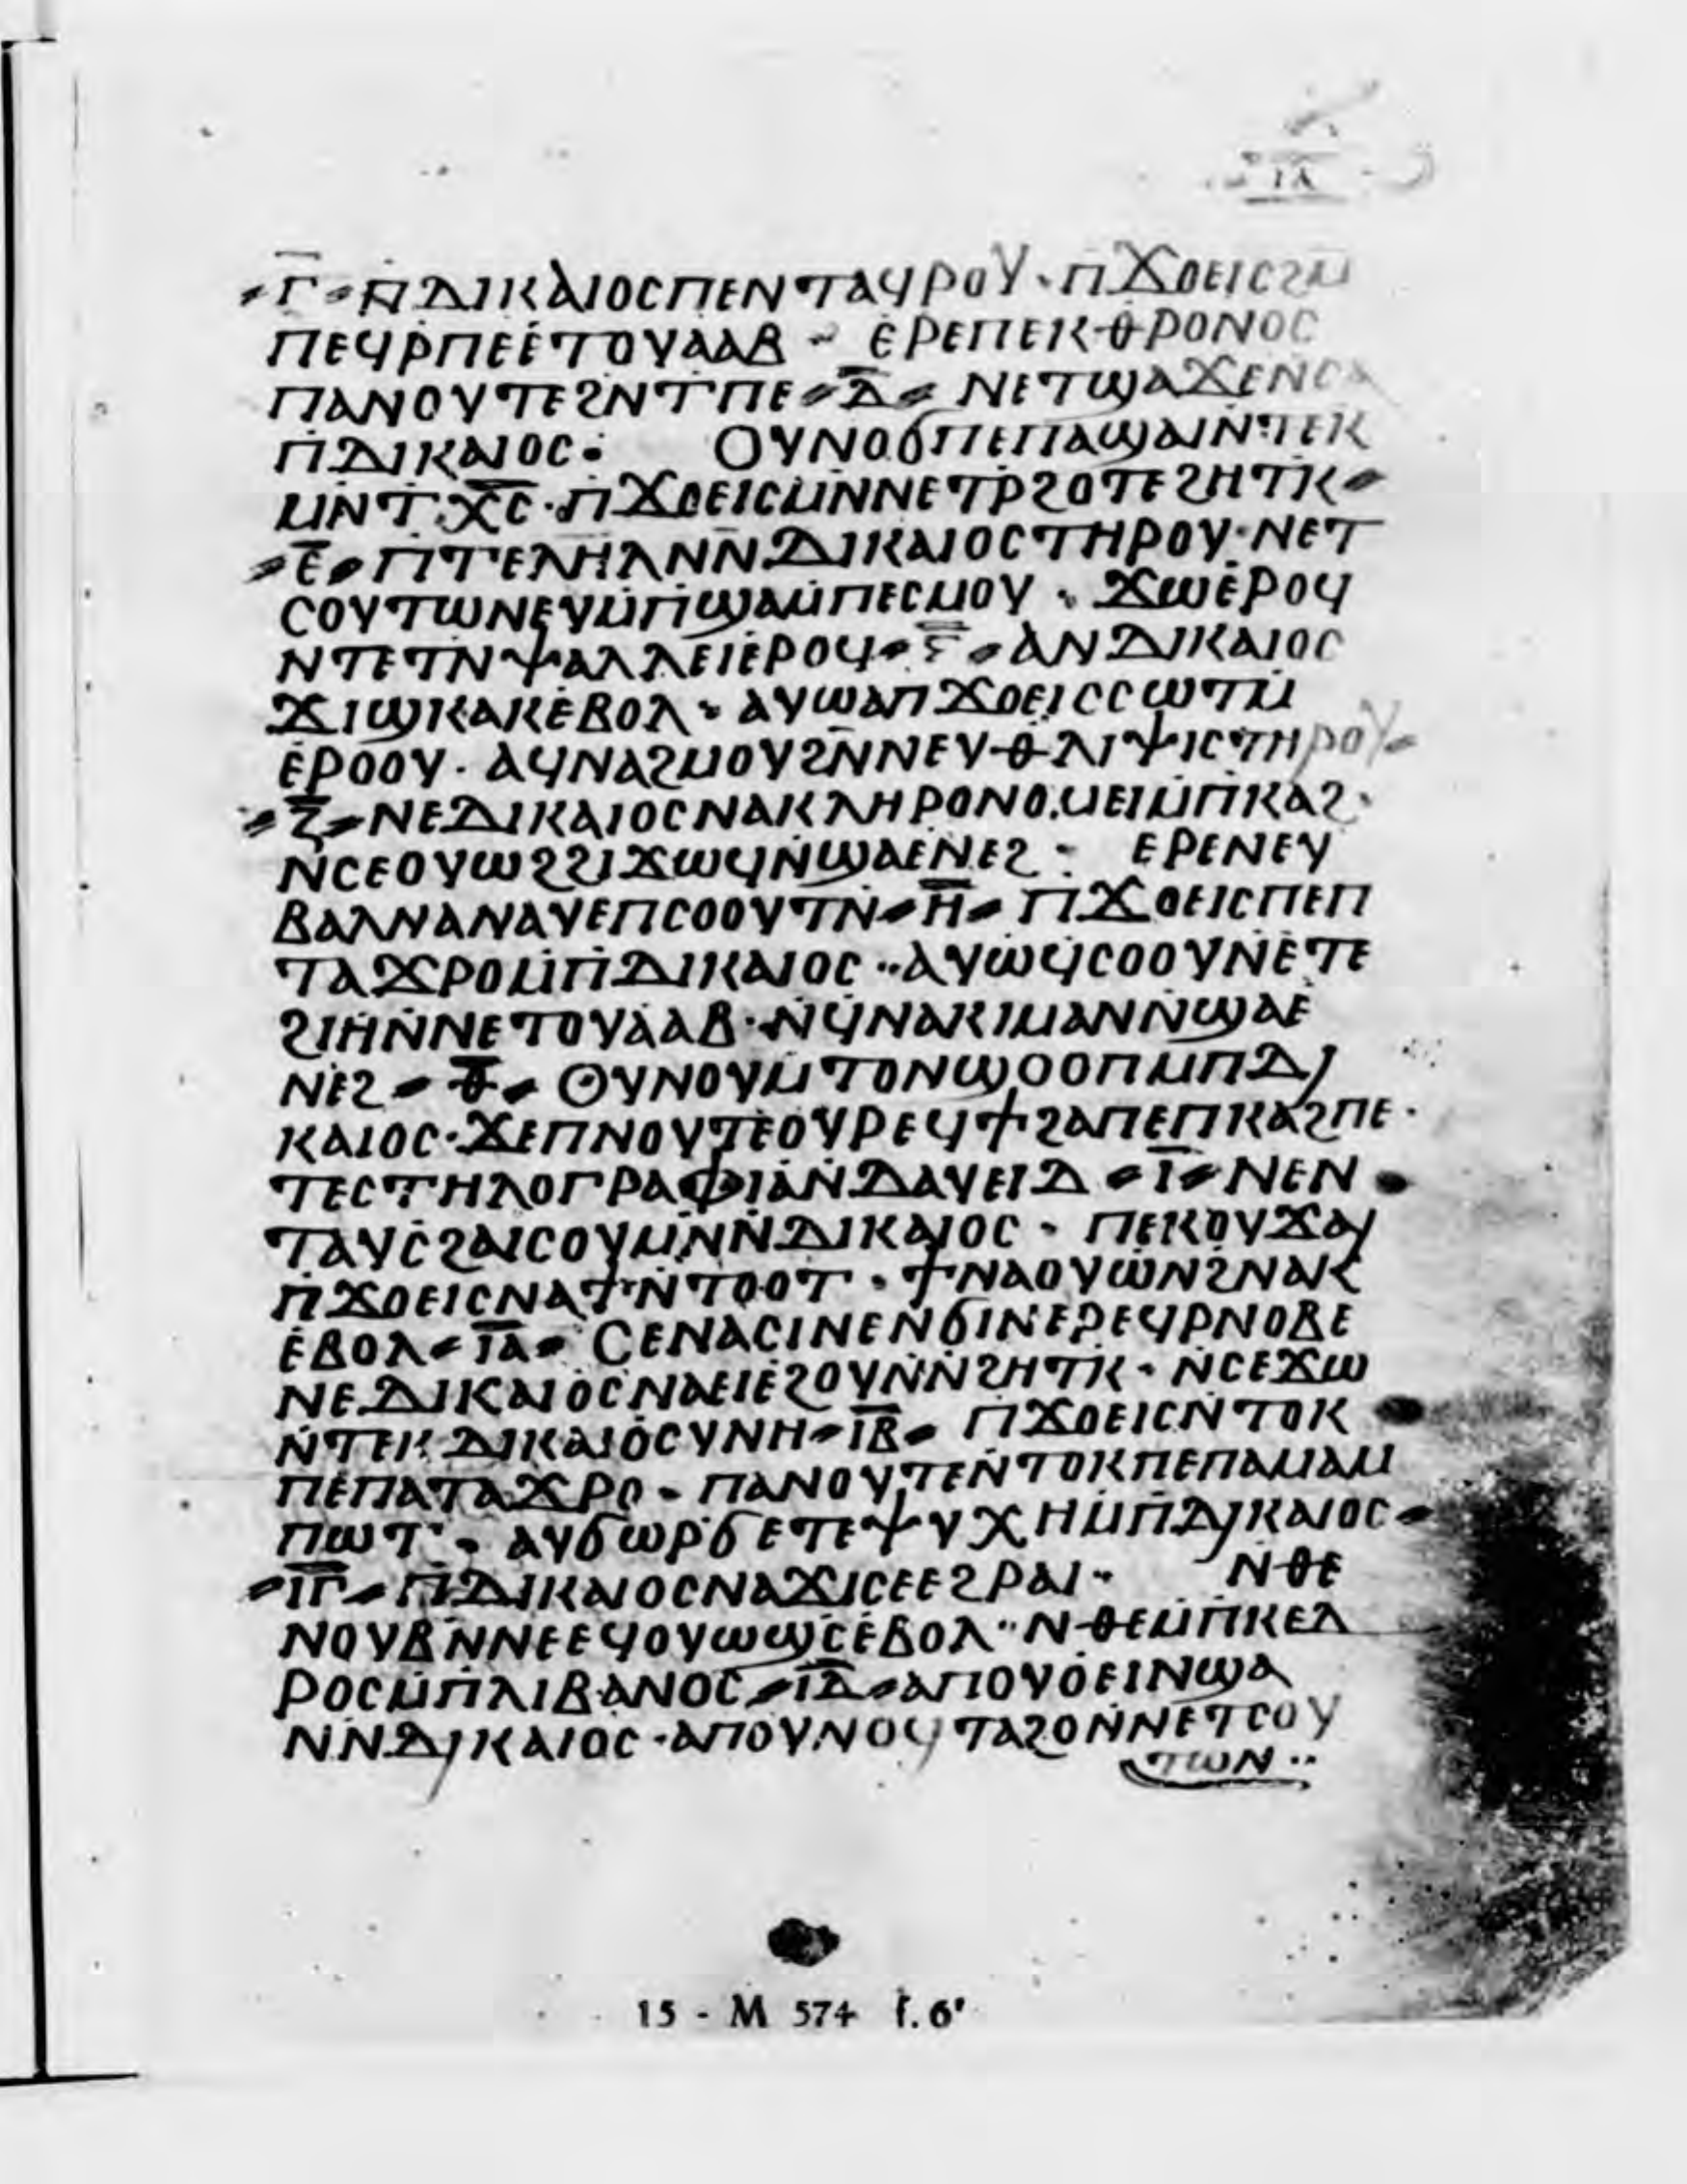 ⲓⲁ
Ⲅ ⲡⲇⲓⲕⲁⲓⲟⲥⲡⲉⲛⲧⲁϥⲣⲟⲩ· ⲡϫⲟⲉⲓⲥϩⲙ
ⲡⲉϥⲣⲡⲉⲉⲧⲟⲩⲁⲁⲃ · ⲉⲣⲉⲡⲉⲕⲑⲣⲟⲛⲟⲥ
ⲡⲁⲛⲟⲩⲧⲉϩⲛⲧⲡⲉ Ⲇ ⲛⲉⲧϣⲁϫⲉⲛⲥⲁ
ⲡⲇⲓⲕⲁⲓⲟⲥ: ⲟⲩⲛⲟϭⲡⲉⲡⲁϣⲁⲓⲛⲧⲉⲕ
ⲙⲛⲧⲭ̅ⲥ̅·ⲡϫⲟⲉⲓⲥⲙⲛⲛⲉⲧⲣϩⲟⲧⲉϩⲏⲧⲕ
Ⲉ ⲡⲧⲉⲗⲏⲗⲛⲛⲇⲓⲕⲁⲓⲟⲥⲧⲏⲣⲟⲩ·ⲛⲉⲧ
ⲥⲟⲩⲧⲱⲛⲉⲩⲙⲡϣⲁⲙⲡⲉⲥⲙⲟⲩ · ϫⲱⲉⲣⲟϥ
ⲛⲧⲉⲧⲛⲯⲁⲗⲗⲉⲓⲉⲣⲟϥ Ⲋ ⲁⲛⲇⲓⲕⲁⲓⲟⲥ
ϫⲓϣⲕⲁⲕⲉⲃⲟⲗ · ⲁⲩⲱⲁⲡϫⲟⲉⲓⲥⲥⲱⲧⲙ
ⲉⲣⲟⲟⲩ· ⲁϥⲛⲁϩⲙⲟⲩϩⲛⲛⲉⲩⲑⲗⲓⲯⲓⲥⲧⲏⲣⲟⲩ
Ⲍ ⲛⲉⲇⲓⲕⲁⲓⲟⲥⲛⲁⲕⲗⲏⲣⲟⲛⲟⲙⲉⲓⲙⲡⲕⲁϩ·
ⲛⲥⲉⲟⲩⲱϩϩⲓϫⲱϥⲛϣⲁⲉⲛⲉϩ · ⲉⲣⲉⲛⲉⲩ
ⲃⲁⲗⲛⲁⲛⲁⲩⲉⲡⲥⲟⲟⲩⲧⲛ Ⲏ ⲡϫⲟⲉⲓⲥⲡⲉⲡ
ⲧⲁϫⲣⲟⲙⲡⲇⲓⲕⲁⲓⲟⲥ ··ⲁⲩⲱϥⲥⲟⲟⲩⲛⲉⲧⲉ
ϩⲓⲏⲛⲛⲉⲧⲟⲩⲁⲁⲃ·ⲛϥⲛⲁⲕⲓⲙⲁⲛⲛϣⲁⲉ
ⲛⲉϩ Ⲑ ⲟⲩⲛⲟⲩⲙⲧⲟⲛϣⲟⲟⲡⲙⲡⲇⲓ
ⲕⲁⲓⲟⲥ·ϫⲉⲡⲛⲟⲩⲧⲉⲟⲩⲣⲉϥϯϩⲁⲡⲉⲡⲕⲁϩⲡⲉ·
ⲧⲉⲥⲧⲏⲗⲟⲅⲣⲁⲫⲓⲁⲛⲇⲁⲩⲉⲓⲇ Ⲓ ⲛⲉⲛ
ⲧⲁⲩⲥϩⲁⲓⲥⲟⲩⲙⲛⲛⲇⲓⲕⲁⲓⲟⲥ · ⲡⲉⲕⲟⲩϫⲁⲓ
ⲡϫⲟⲉⲓⲥⲛⲁϯⲛⲧⲟⲟⲧ · ϯⲛⲁⲟⲩⲱⲛϩⲛⲁⲕ
ⲉⲃⲟⲗ ⲒⲀ ⲥⲉⲛⲁⲥⲓⲛⲉⲛϭⲓⲛⲉⲣⲉϥⲣⲛⲟⲃⲉ
ⲛⲉⲇⲓⲕⲁⲓⲟⲥⲛⲁⲉⲓⲉϩⲟⲩⲛⲛϩⲏⲧⲕ · ⲛⲥⲉϫⲱ
ⲛⲧⲉⲕⲇⲓⲕⲁⲓⲟⲥⲩⲛⲏ ⲒⲂ ⲡϫⲟⲉⲓⲥⲛⲧⲟⲕ
ⲡⲉⲡⲁⲧⲁϫⲣⲟ · ⲡⲁⲛⲟⲩⲧⲉⲛⲧⲟⲕⲡⲉⲡⲁⲙⲁⲙ
ⲡⲱⲧ · ⲁⲩϭⲱⲣϭⲉⲧⲉⲯⲩⲭⲏⲙⲡⲇⲓⲕⲁⲓⲟⲥ
ⲒⲄ ⲡⲇⲓⲕⲁⲓⲟⲥⲛⲁϫⲓⲥⲉⲉϩⲣⲁⲓ · ⲛⲑⲉ
ⲛⲟⲩⲃⲛⲛⲉⲉϥⲟⲩⲱϣⲥⲉⲃⲟⲗ ··ⲛⲑⲉⲙⲡⲕⲉⲇ
ⲣⲟⲥⲙⲡⲗⲓⲃⲁⲛⲟⲥ ⲒⲆ ⲁⲡⲟⲩⲟⲉⲓⲛϣⲁ
ⲛⲛⲇⲓⲕⲁⲓⲟⲥ ·ⲁⲡⲟⲩⲛⲟϥⲧⲁϩⲟⲛⲛⲉⲧⲥⲟⲩ
ⲧⲱⲛ ··
15 - M 574 f. 6ʳ